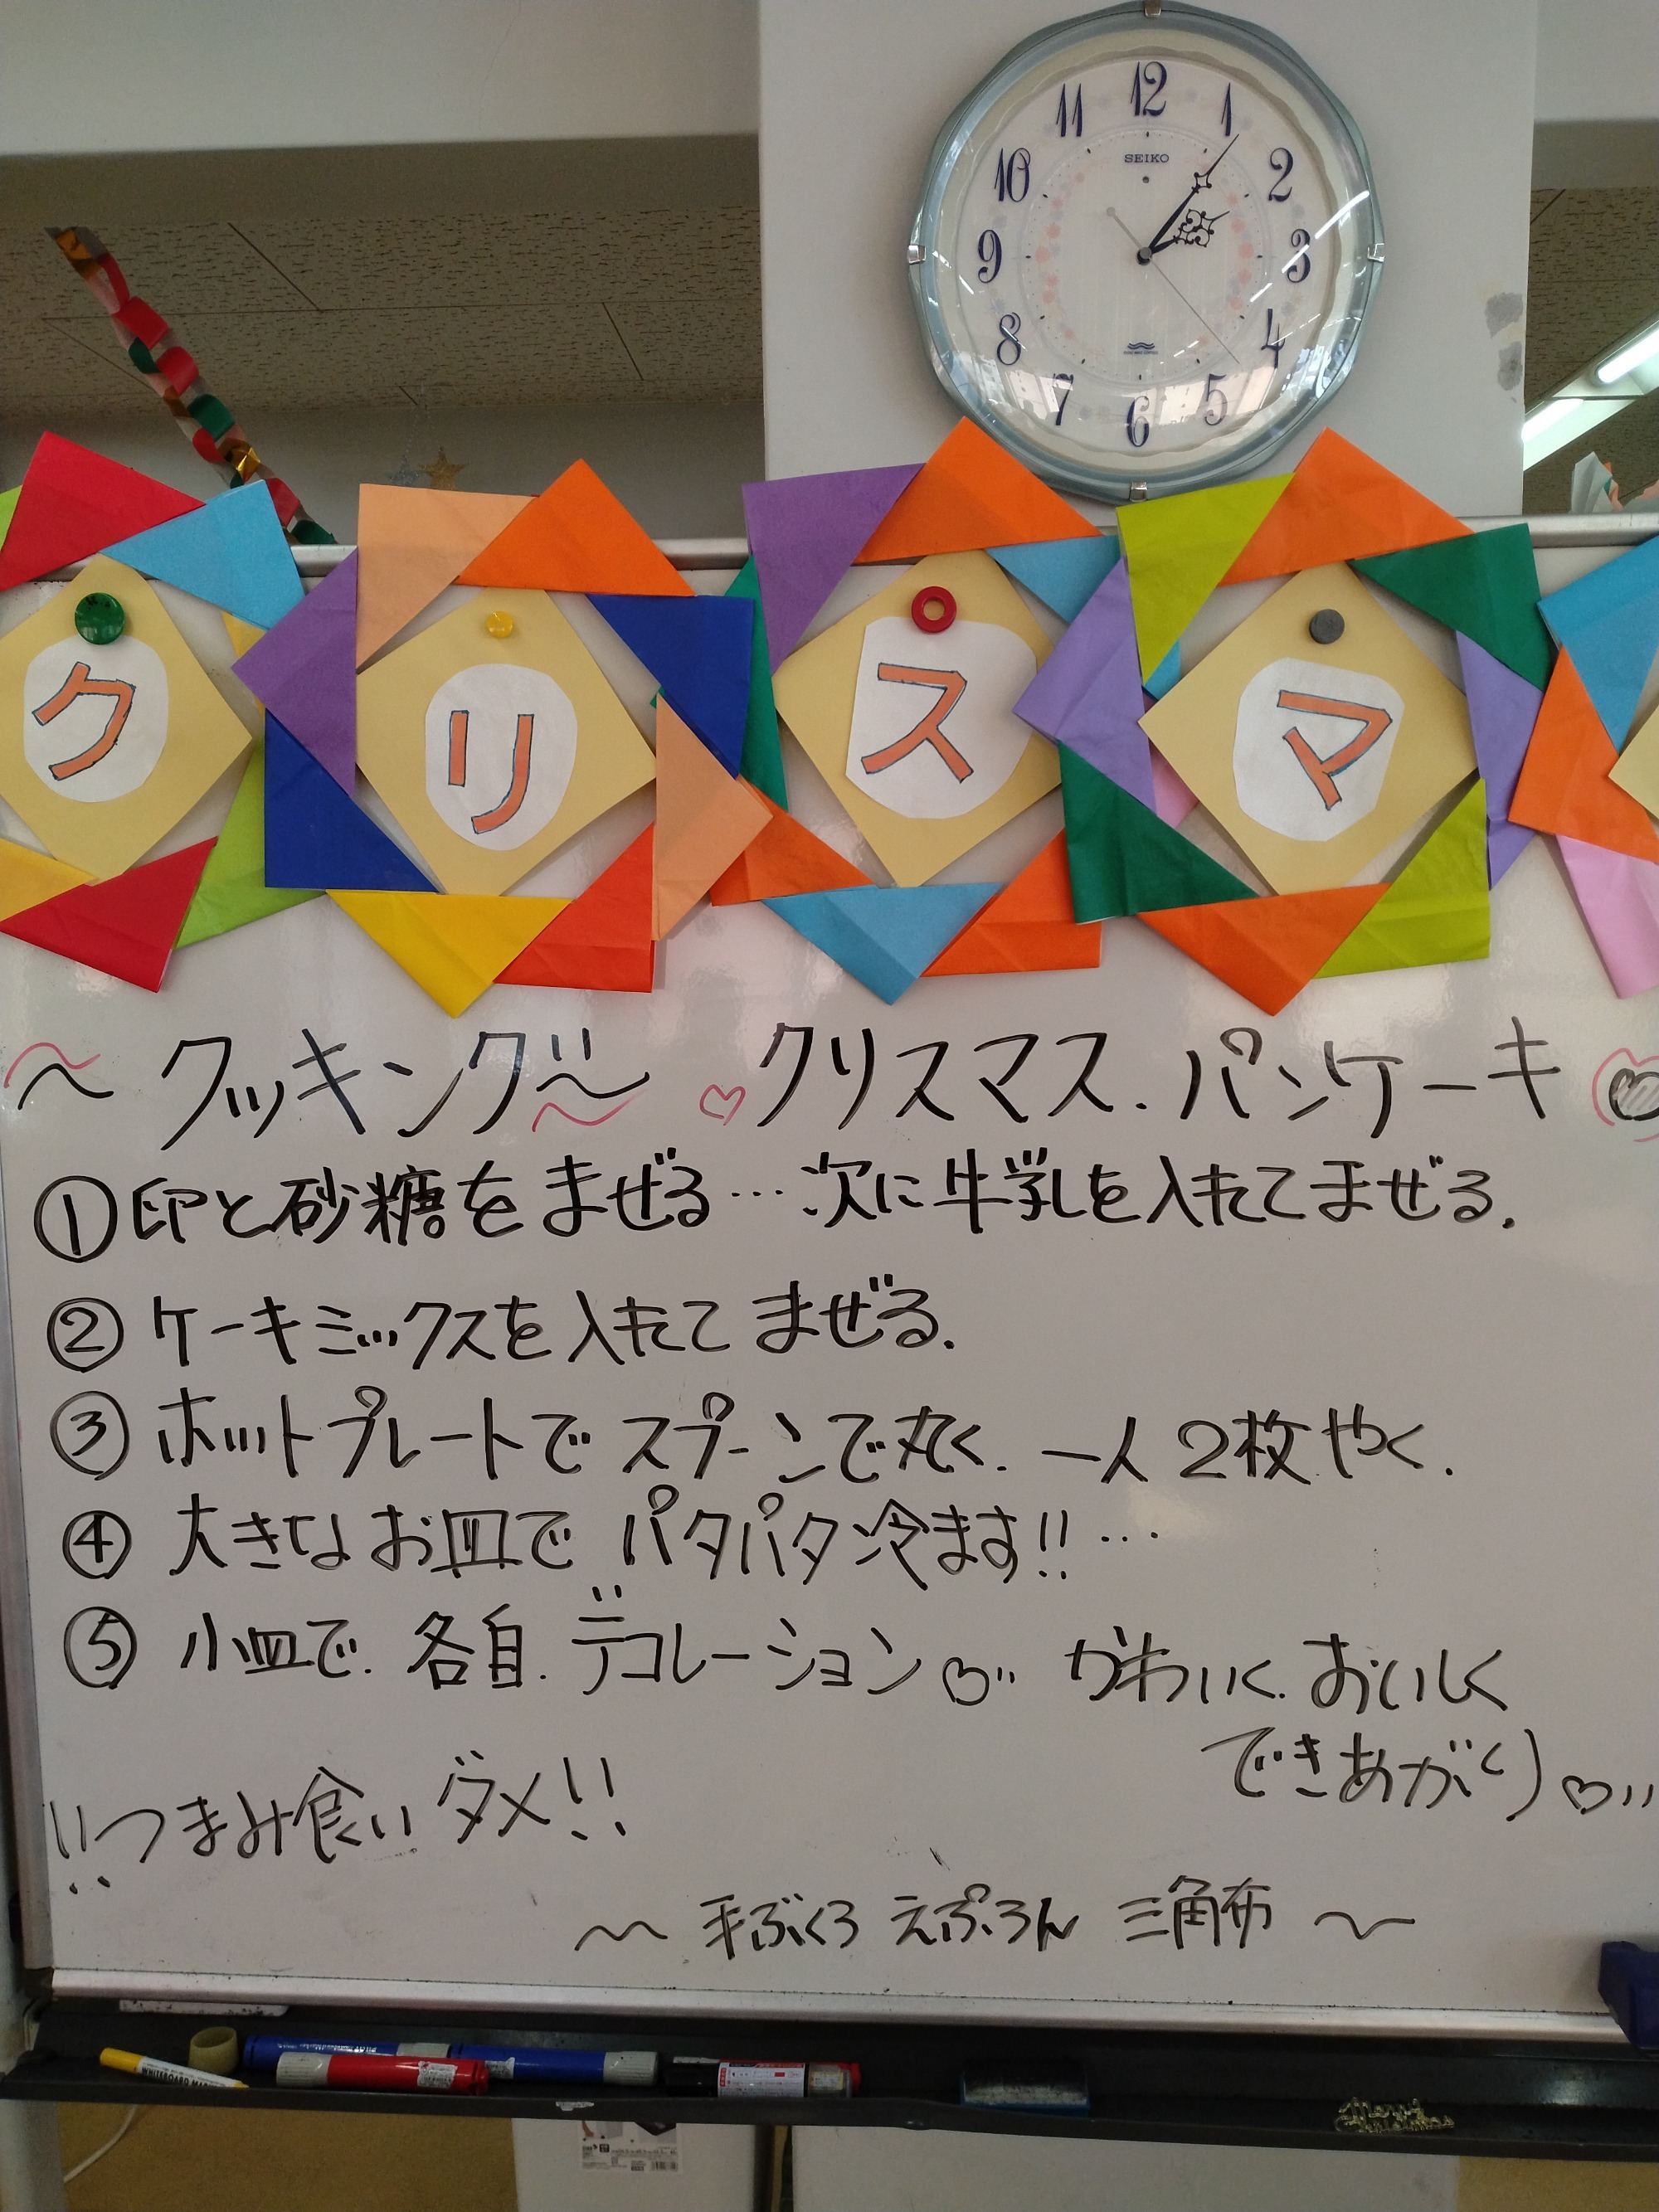 12
11 1
SEIKO
10 2
9 3
8 4
7 5
6
クリスマ
～クッキング～ ♡クリスマス.パンケーキ♡
① 卵と砂糖をまぜる…次に牛乳を入れてまぜる.
② ケーキミックスを入れてまぜる.
③ ホットプレートでスプーンで丸く. 一人2枚やく.
④ 大きなお皿でパタパタ冷ます!!…
⑤ 小皿で.各自.デコレーション♡ かわいく.おいしく
できあがり♡
!!つまみ食いダメ!!
～手ぶくろ えぷろん 三角布～
WHITEBOARD MAR
Merry Christmas